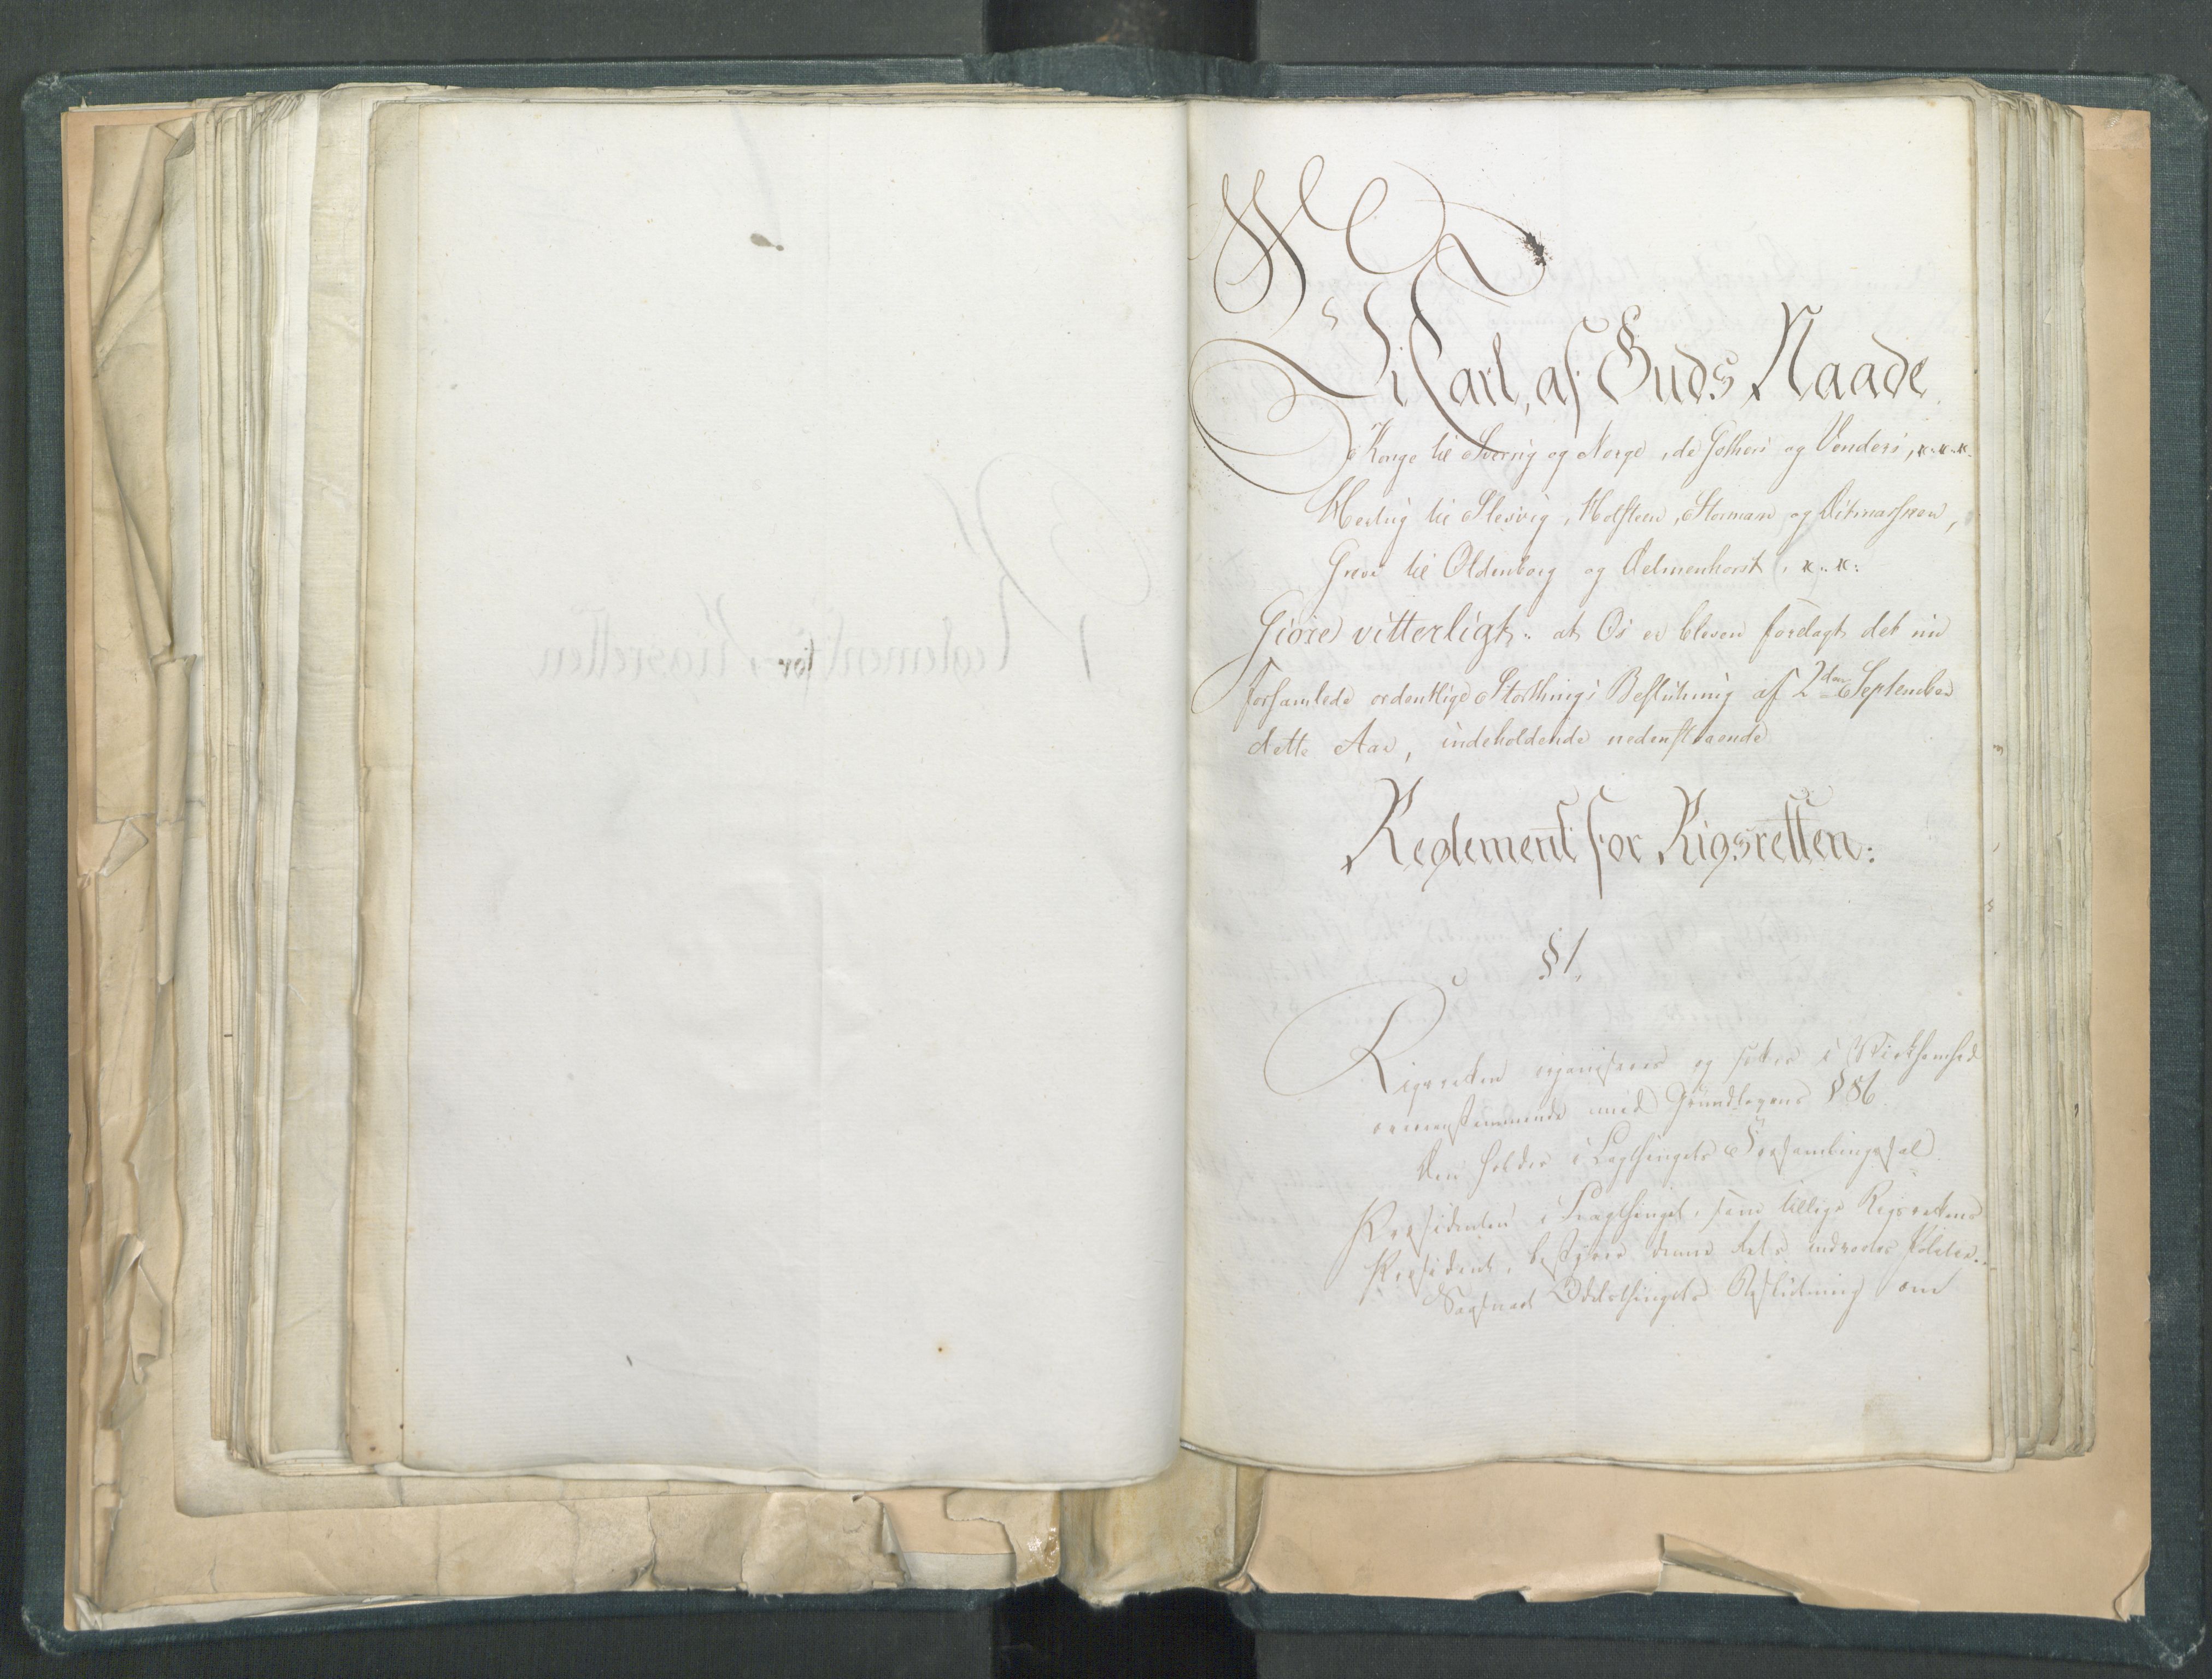 Vi Carl, af Guds Naade
Konge til Sverrig og Norge, de Gothers og Venders, &c. &c. &c.
Hertug til Slesvig, Holsteen, Stormarn og Ditmarsken,
Greve til Oldenborg og Delmenhorst, &c. &c:
Giøre vitterligt: at Os er bleven forelagt det nu
forsamlede ordentlige Storthings Beslutning af 2den September
dette Aar, indeholdende nedenstaaende
Reglement for Rigsretten:
§ 1.
Rigsretten organiseres og sættes i Virksomhed
overensstemmende med Grundlovens § 86
Den holdes i Lagthingets Forsamlingssal.
Præsidenten i Lagthinget, som tillige Rigsrettens
Præsident, bestyrer denne dets indvortes Politie.
Saasnart Odelsthingets Beslutning om
Reglement for Rigsretten